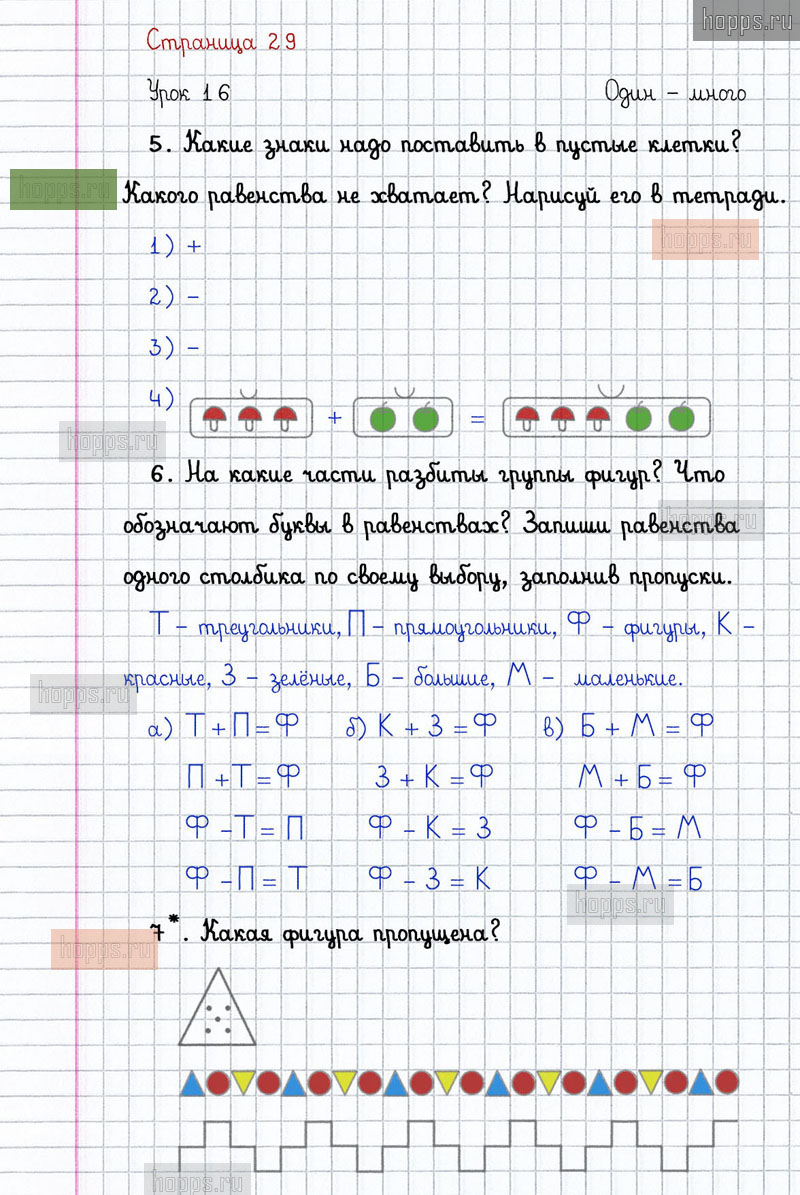 hopps.ru
Страница 29
Урок 16 Один – много
5. Какие знаки надо поставить в пустые клетки?
hopps.ru
Какого равенства не хватает? Нарисуй его в тетради.
hopps.ru
1) +
2) –
3) –
4) + =
hopps.ru
6. На какие части разбиты группы фигур? Что
hopps.ru
обозначают буквы в равенствах? Запиши равенства
одного столбика по своему выбору, заполнив пропуски.
Т – треугольники, П – прямоугольники, Ф – фигуры, К –
красные, З – зелёные, Б – большие, М – маленькие.
hopps.ru
а) Т + П = Ф б) К + З = Ф в) Б + М = Ф
П + Т = Ф З + К = Ф М + Б = Ф
Ф – Т = П Ф – К = З Ф – Б = М
Ф – П = Т Ф – З = К Ф – М = Б
hopps.ru
7*. Какая фигура пропущена?
hopps.ru
hopps.ru